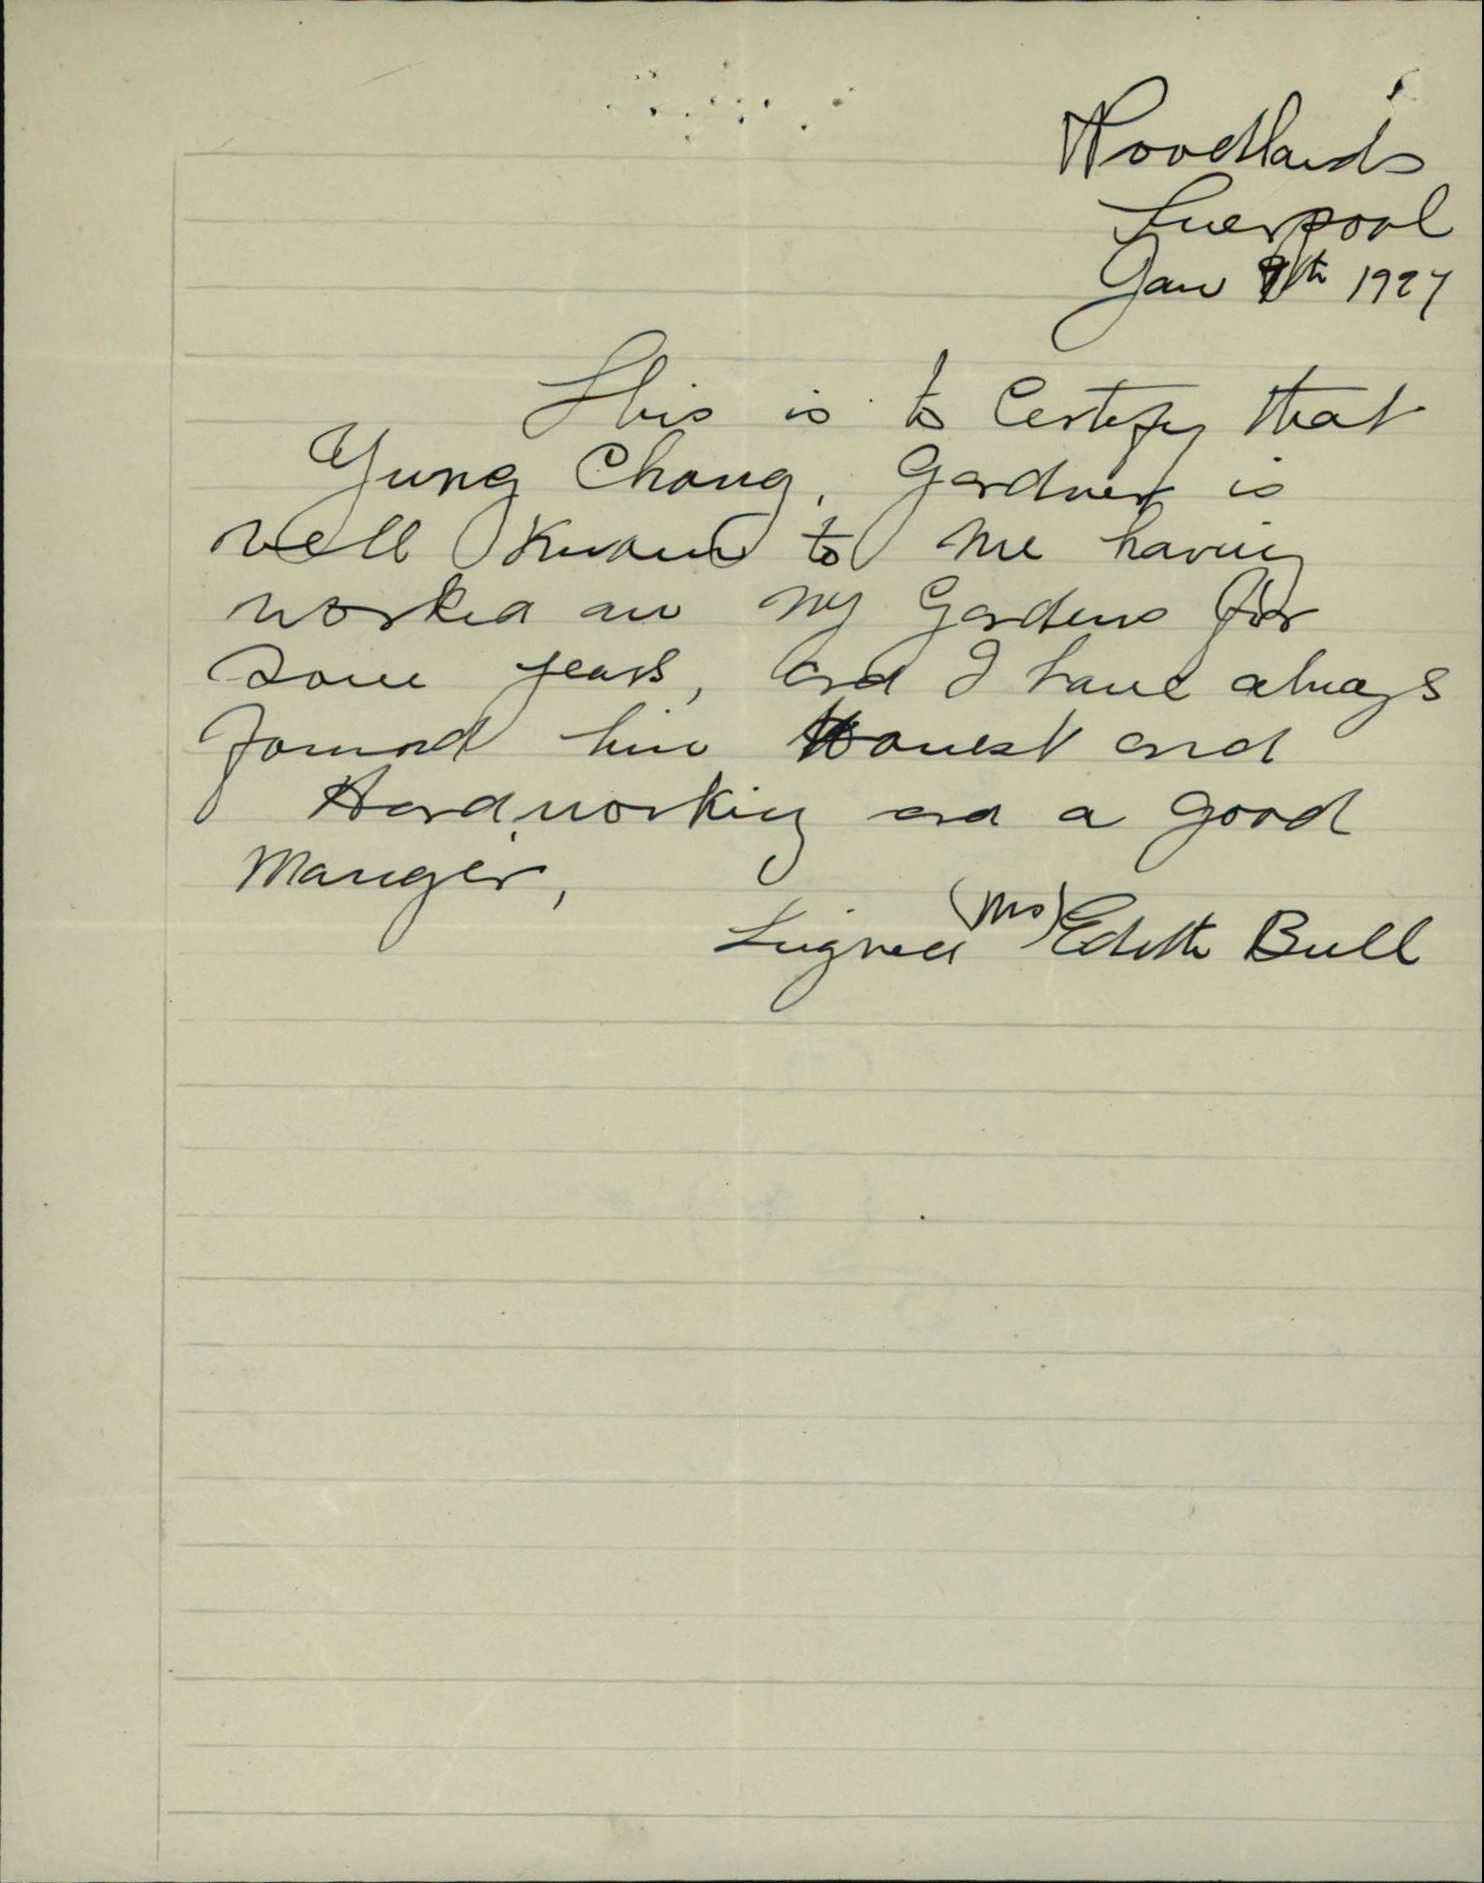 Woodlands
Liverpool
Jan 7th 1927
This is to Certify that
Yung Chong, Gardner is
well known to me having
worked an my Gardens for
some years, and I have always
found him Honest and
Hardworking and a good
Manger,
Signed (Mrs) Edith Bull